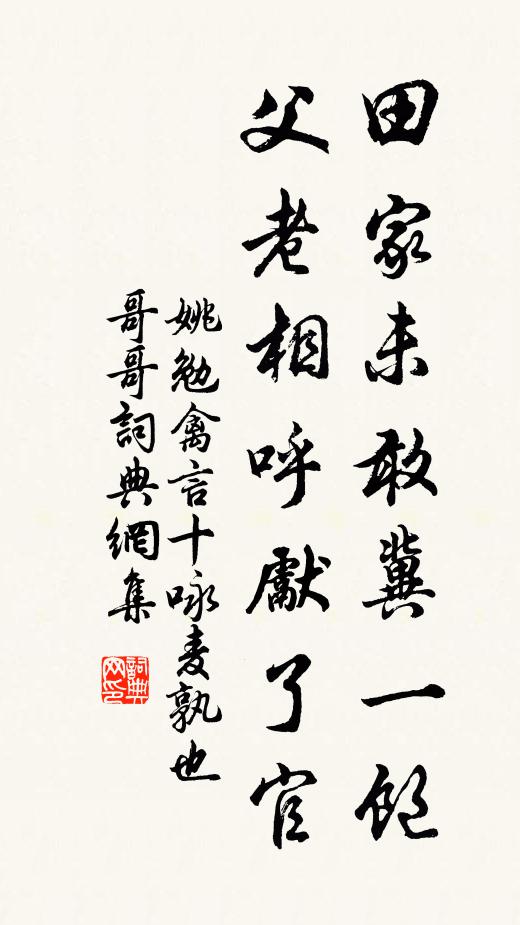 田家未敢冀一飽
父老相呼獻了官
姚勉禽言十咏麦孰也
哥哥詞典網集
詞典网印